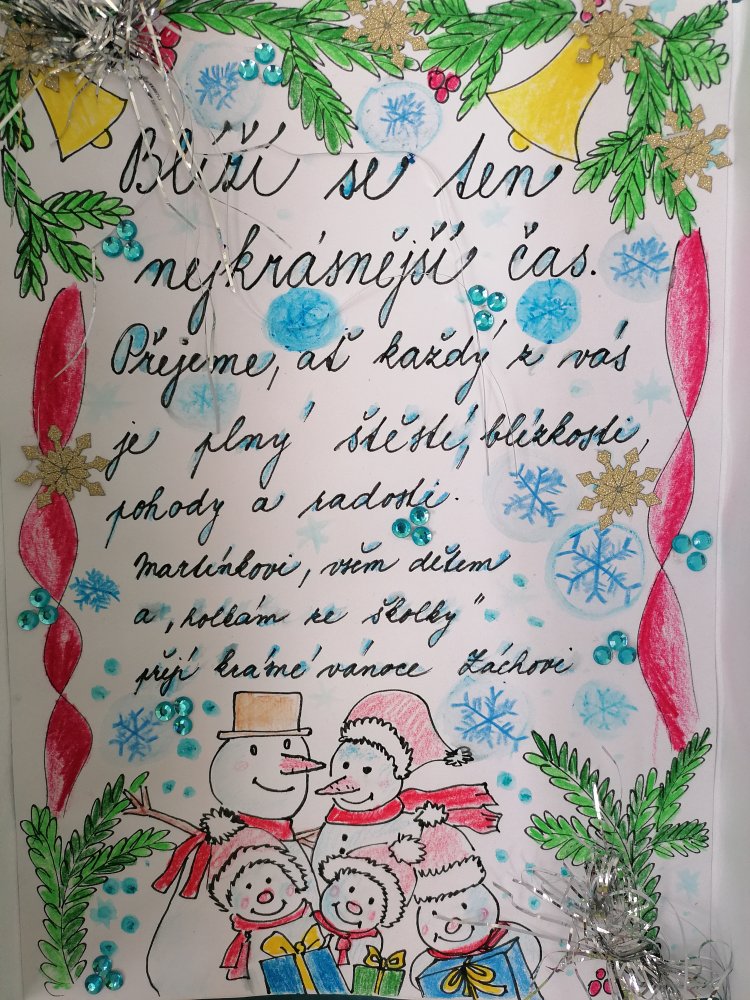 Blíží se ten
nejkrásnější čas.
Přejeme, ať každý z vás
je plný štěstí, blízkosti,
pohody a radosti.
Martínkovi, všem dětem
a „holkám ze školky"
přejí krásné vánoce Záchovi